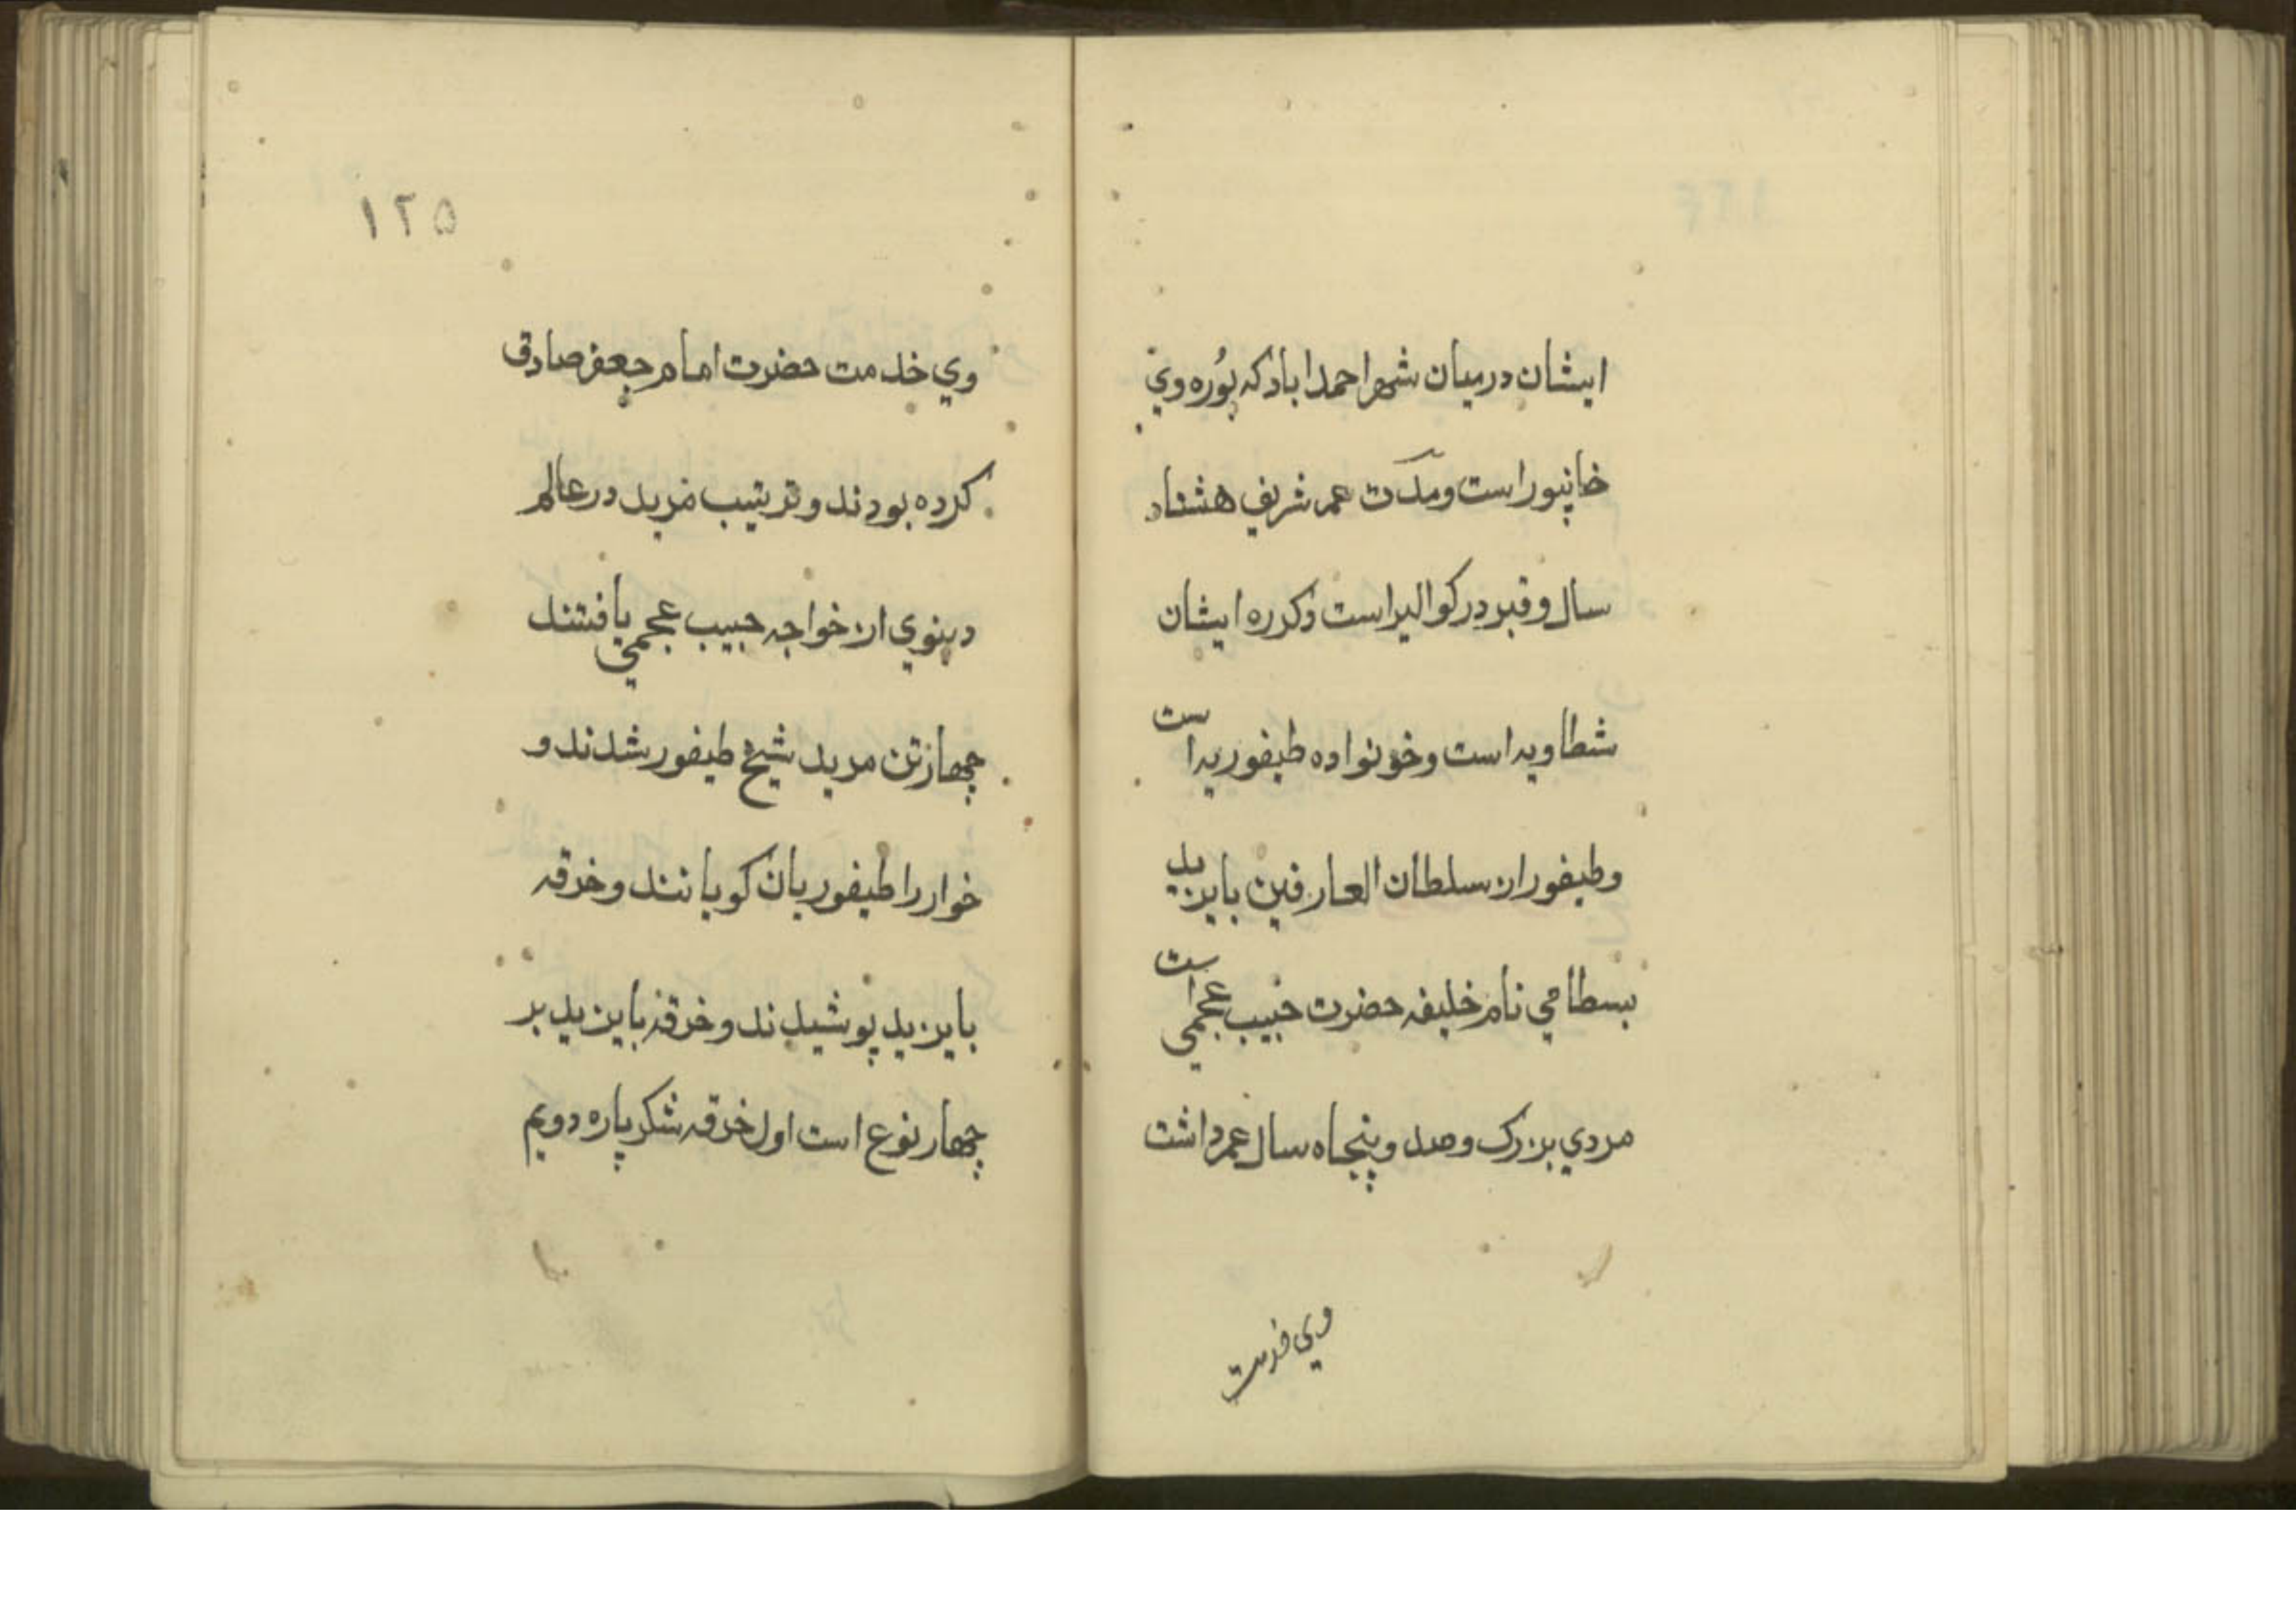 ایشان درمیان شهر احمداباد که پُوره وي
خانپور است و مدّت عمر شریف هشتاد
سال و قبر در کوالیر است وکرره ایشان
شطاویه است و خونواده طیفوریه است
وطیفور ان سلطان العارفین بایزید
بسطامي نام خلیفه حضرت حبیب عجمي است
مردي بزرک وصد و پنجاه سال عمر داشت
وی خدمت
۱۲۵
وي خدمت حضرت امام جعفر صادق
کرده بودند و تربیت مزید در عالم
دینوي از خواجه حبیب عجمي یافتند
چهار تن مرید شیخ طیفور شدند و
خوار را طیفوریان کویانند و خرقه
بایزید پوشیدند و خرقه بایزید بر
چهار نوع است اول خرقه شکر پاره دویم